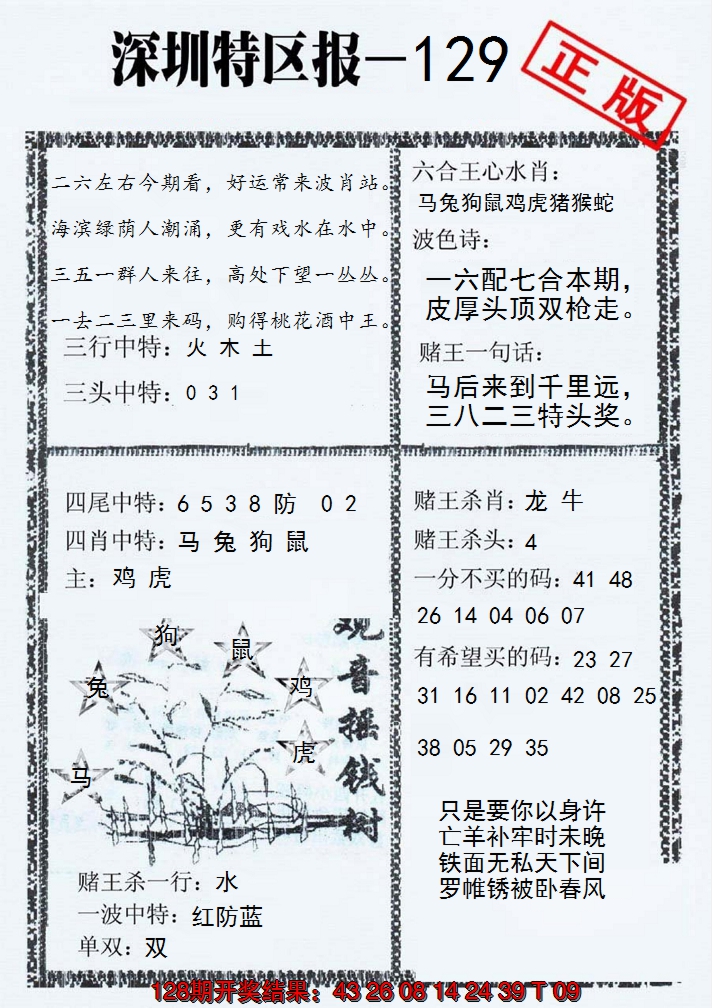 深圳特区报—129
正版
二六左右今期看，好运常来波肖站。
海滨绿荫人潮涌，更有戏水在水中。
三五一群人来往，高处下望一丛丛。
一去二三里来码，购得桃花酒中王。
三行中特：火 木 土
三头中特：0 3 1
六合王心水肖：
马兔狗鼠鸡虎猪猴蛇
波色诗：
一六配七合本期，
皮厚头顶双枪走。
赌王一句话：
马后来到千里远，
三八二三特头奖。
四尾中特：6 5 3 8 防 0 2
四肖中特：马 兔 狗 鼠
主：鸡 虎
狗
鼠
兔
鸡
虎
马
观音摇钱树
赌王杀一行：水
一波中特：红防蓝
单双：双
赌王杀肖：龙 牛
赌王杀头：4
一分不买的码：41 48
26 14 04 06 07
有希望买的码：23 27
31 16 11 02 42 08 25
38 05 29 35
只是要你以身许
亡羊补牢时未晚
铁面无私天下间
罗帷锈被卧春风
128期开奖结果：43 26 08 14 24 39 T 09